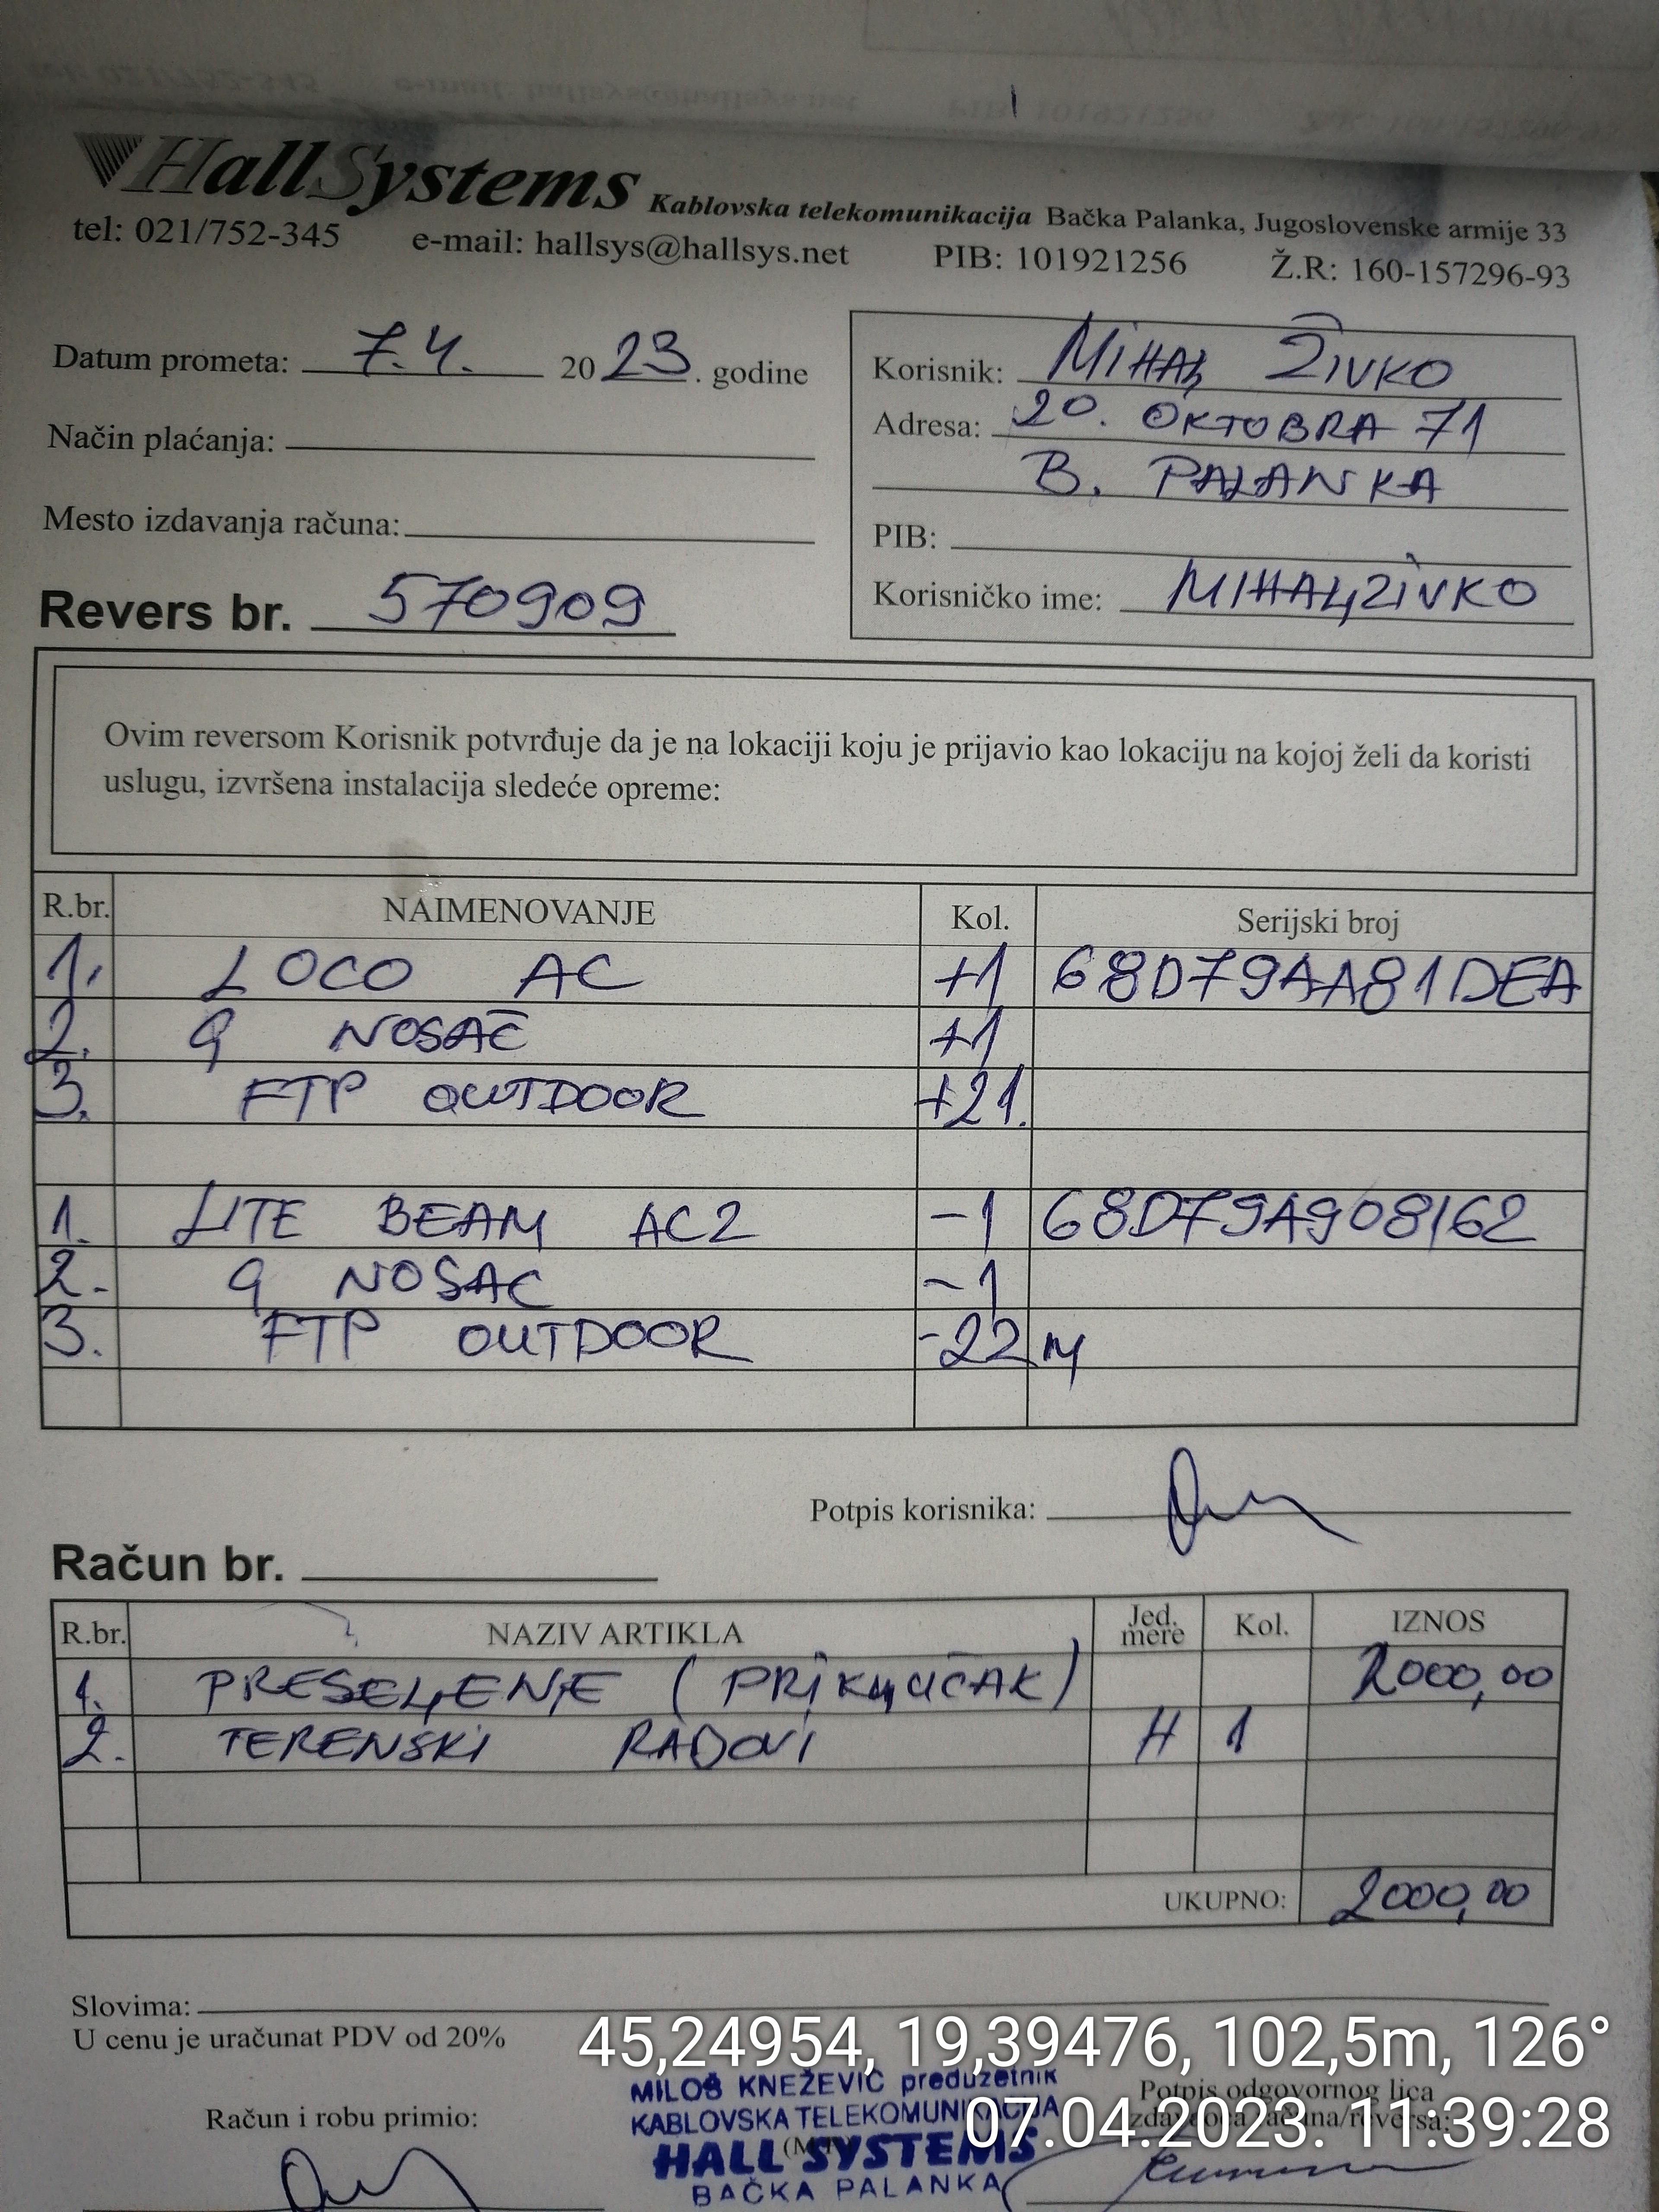 HallSystems Kablovska telekomunikacija Bačka Palanka, Jugoslovenske armije 33
tel: 021/752-345 e-mail: hallsys@hallsys.net PIB: 101921256 Ž.R: 160-157296-93
Datum prometa: 7.4. 2023. godine
Način plaćanja:
Mesto izdavanja računa:
Revers br. 570909
Korisnik: MIHAљ ŽIVKO
Adresa: 20. OKTOBRA 71
B. PALANKA
PIB:
Korisničko ime: MIHAљZIVKO
Ovim reversom Korisnik potvrđuje da je na lokaciji koju je prijavio kao lokaciju na kojoj želi da koristi
uslugu, izvršena instalacija sledeće opreme:
R.br. NAIMENOVANJE Kol. Serijski broj
1. LOCO AC +1 68D79AA81DEA
2. G NOSAČ +1
3. FTP OUTDOOR +21.
1. LITE BEAM AC2 -1 68D79A908162
2. G NOSAC -1
3. FTP OUTDOOR -22 M
Potpis korisnika:
Račun br.
R.br. NAZIV ARTIKLA Jed. mere Kol. IZNOS
1. PRESEљENJE (PRIKљUČAK) 2000,00
2. TERENSKI RADOVI H 1
UKUPNO: 2000,00
Slovima:
U cenu je uračunat PDV od 20%
45,24954, 19,39476, 102,5m, 126°
07.04.2023. 11:39:28
MILOŠ KNEŽEVIĆ preduzetnik
KABLOVSKA TELEKOMUNIKACIJA
HALL SYSTEMS
BAČKA PALANKA
Račun i robu primio:
Potpis odgovornog lica
izdavaoca računa/reversa: